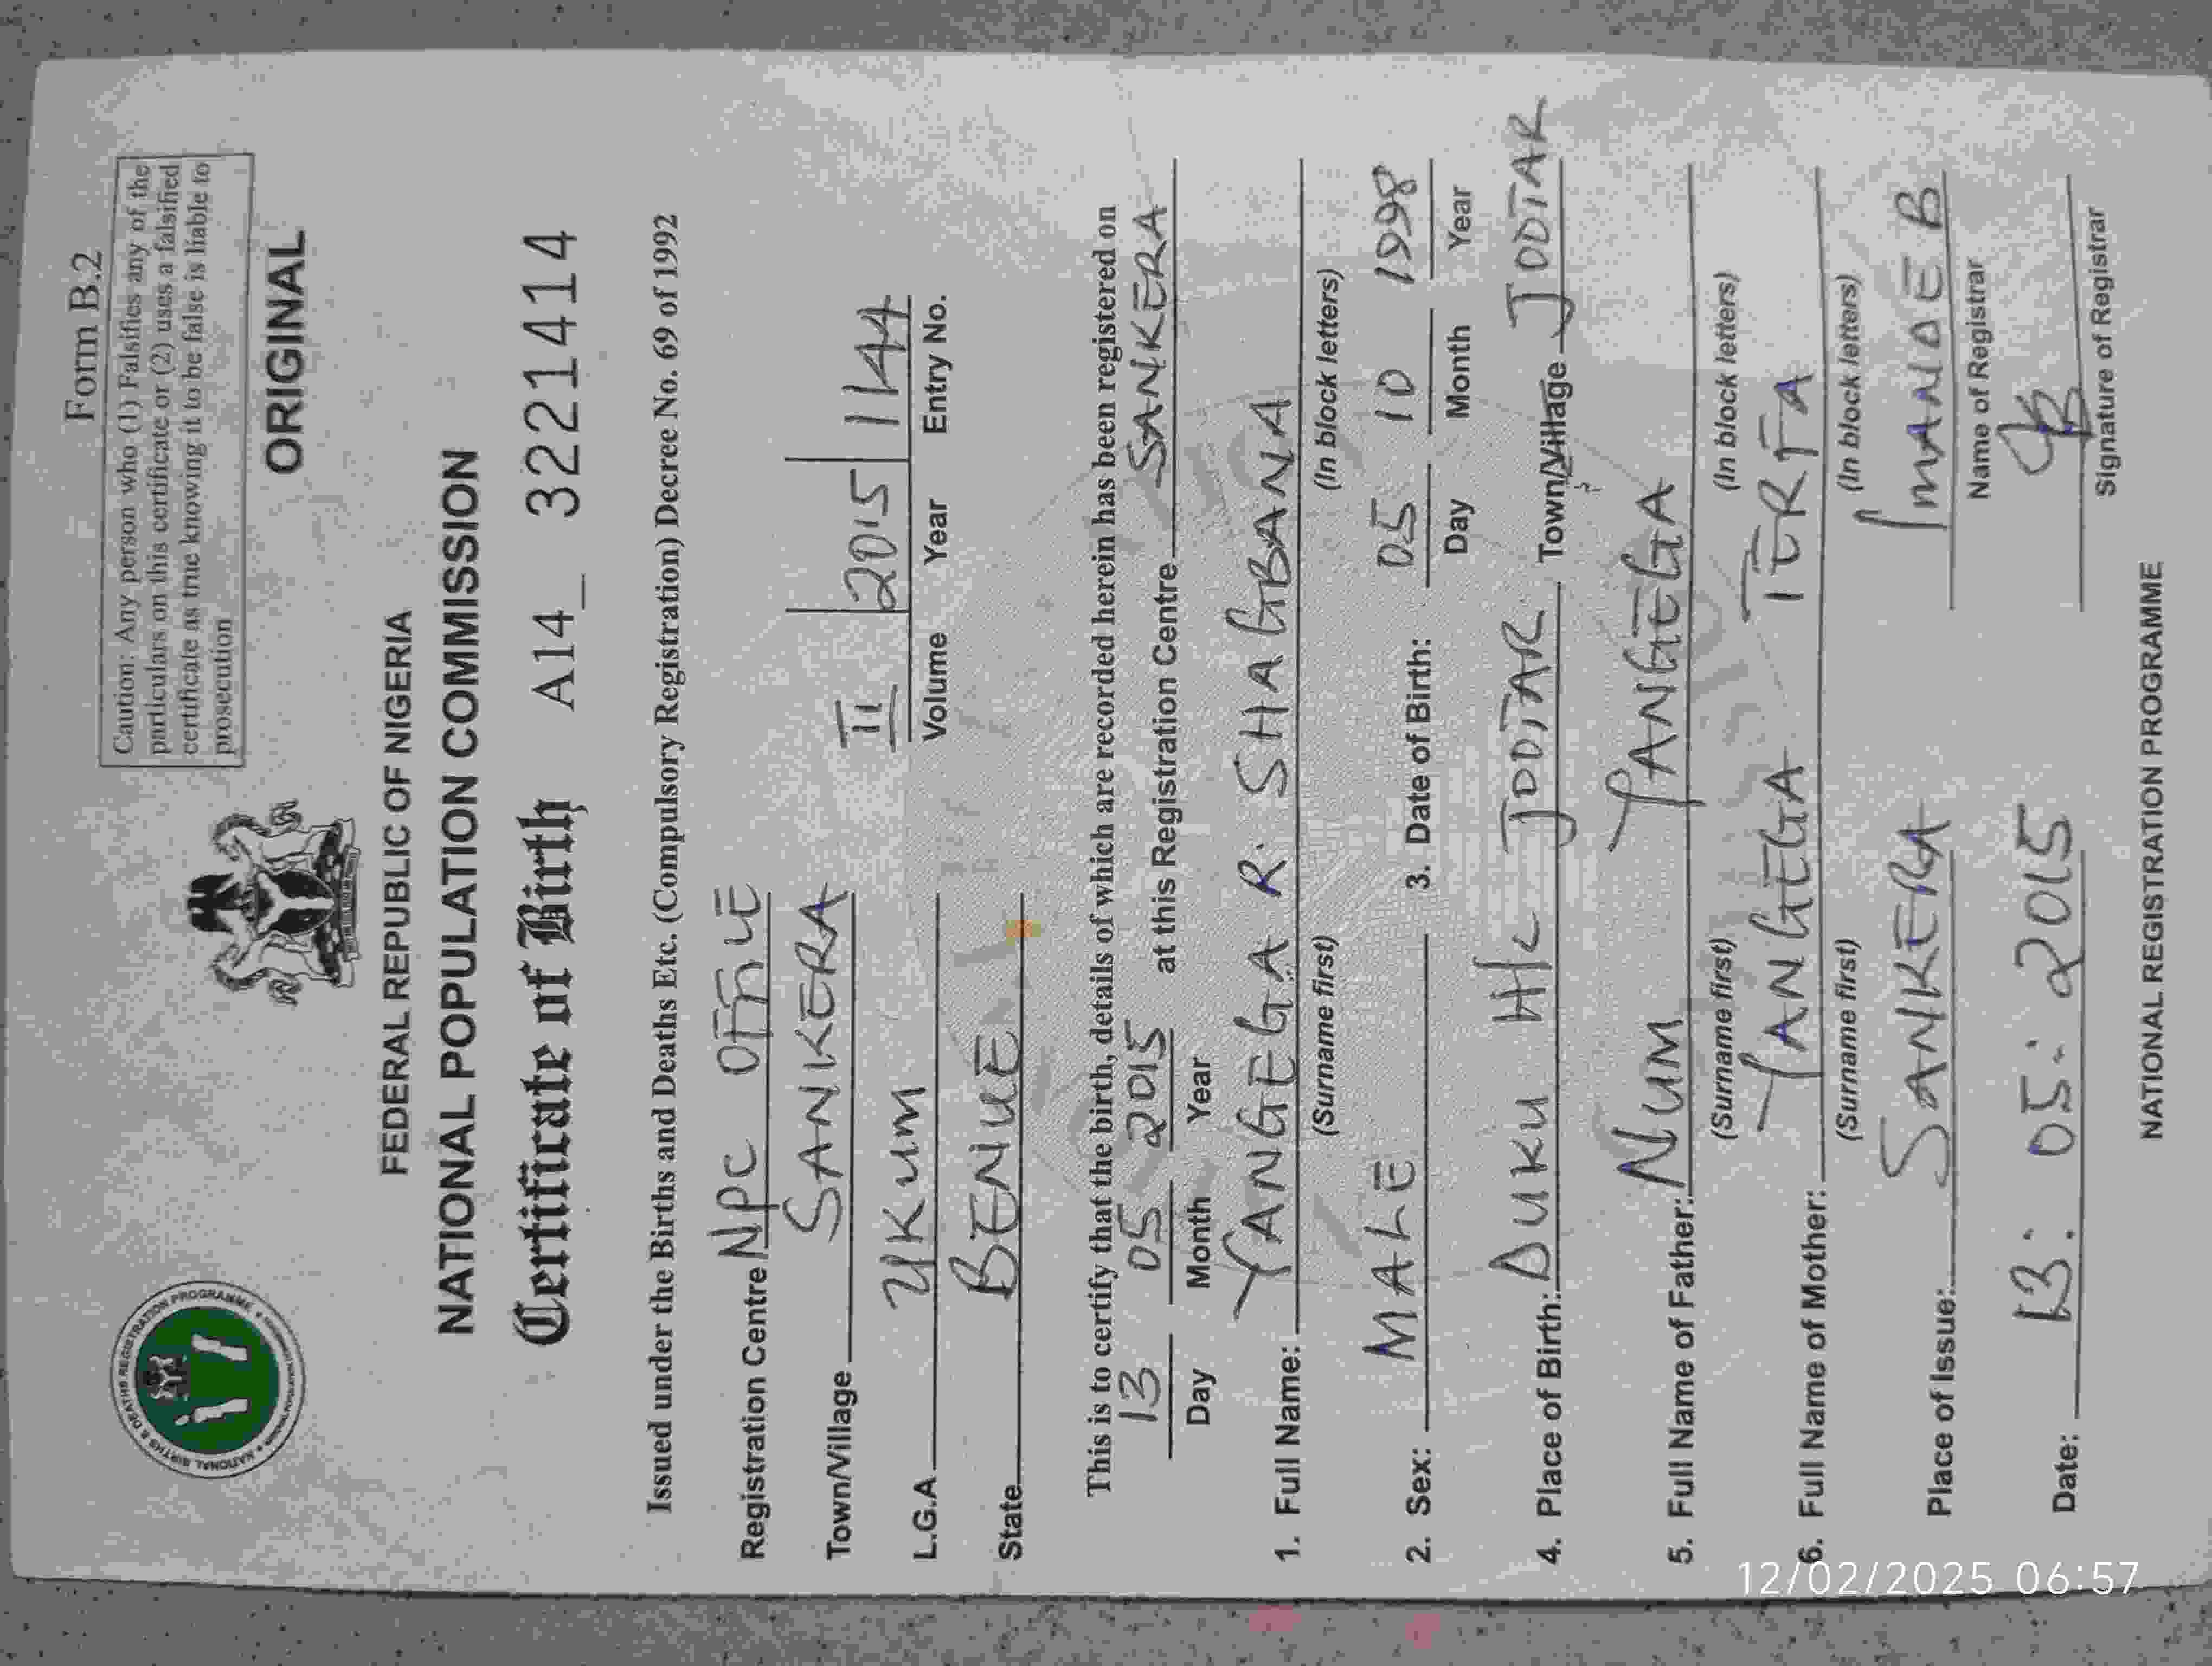 Form B.2
Caution: Any person who (1) Falsifies any of the
particulars on this certificate or (2) uses a falsified
certificate as true knowing it to be false is liable to
prosecution
ORIGINAL
NATIONAL BIRTHS & DEATHS REGISTRATION PROGRAMME
FEDERAL REPUBLIC OF NIGERIA
NATIONAL POPULATION COMMISSION
Certificate of Birth A14_ 3221414
Issued under the Births and Deaths Etc. (Compulsory Registration) Decree No. 69 of 1992
Registration Centre NPC OFFICE
Town/Village SANKERA
II 2015 1144
Volume Year Entry No.
L.G.A UKUM
State BENUE
This is to certify that the birth, details of which are recorded herein has been registered on
13 05 2015 at this Registration Centre SANKERA
Day Month Year
1. Full Name: YANGEGA R. SHAGBANA
(Surname first) (In block letters)
2. Sex: MALE 3. Date of Birth: 05 10 1998
Day Month Year
4. Place of Birth: DUKU H/C JOOTAR Town/Village JOOTAR
5. Full Name of Father: NUM YANGEGA
(Surname first) (In block letters)
6. Full Name of Mother: YANGEGA TERFA
(Surname first) (In block letters)
Place of Issue: SANKERA IMANDE B
Name of Registrar
Date: 13: 05: 2015
Signature of Registrar
NATIONAL REGISTRATION PROGRAMME
12/02/2025 06:57